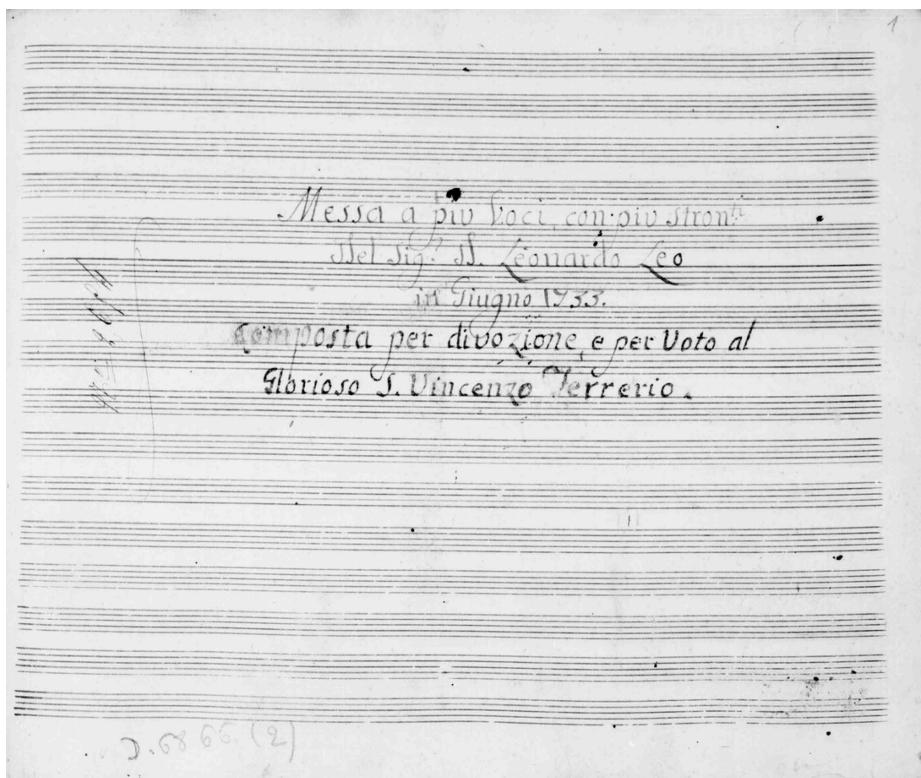 1
Messa a piu Voci, con piu strom.ti
Del Sig.r D. Leonardo Leo
in Giugno 1733.
Composta per divozione, e per Voto al
Glorioso S. Vincenzo Ferrerio.
D. 6866. (2)